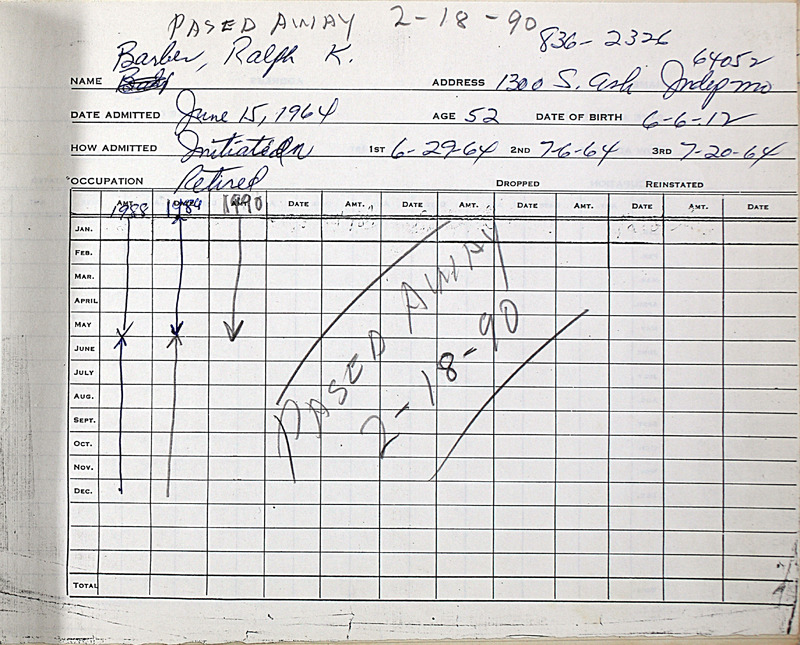 PASED AWAY 2-18-90
836-2326
Barber, Ralph K. 64052
NAME ADDRESS 1300 S. Ash Indep mo
DATE ADMITTED June 15, 1964 AGE 52 DATE OF BIRTH 6-6-12
HOW ADMITTED Initiation 1ST 6-29-64 2ND 7-6-64 3RD 7-20-64
OCCUPATION Retired DROPPED REINSTATED
AMT. DATE AMT. DATE AMT. DATE AMT. DATE AMT. DATE AMT. DATE
1988 1989 1990
JAN.
FEB.
MAR.
APRIL
MAY
JUNE
JULY
AUG.
SEPT.
OCT.
NOV.
DEC.
TOTAL
PASED AWAY
2-18-90